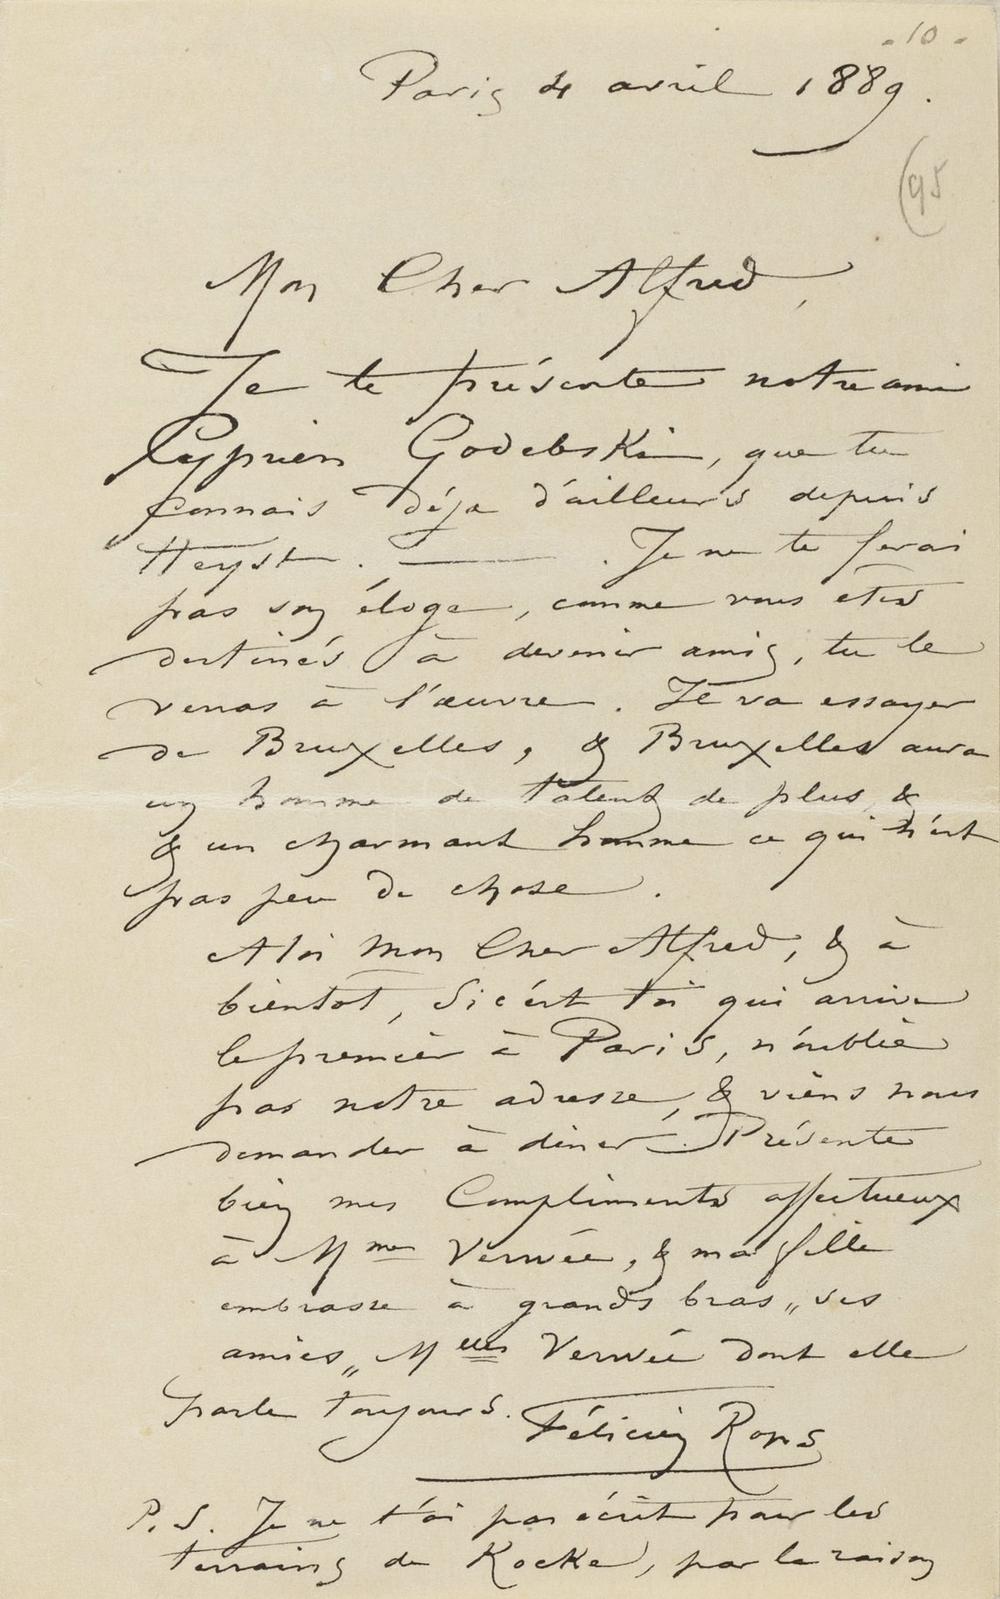 - 10 -
Paris 4 avril 1889.
(95
Mon Cher Alfred,
Je te présente notre ami
Cyprien Godebski, que tu
connais déja d'ailleurs depuis
Heyst. — . Je ne te ferai
pas son éloge, comme vous êtes
destinés à devenir amis, tu le
verras à l'œuvre. Il va essayer
de Bruxelles, & Bruxelles aura
un homme de talent de plus &
& un charmant homme ce qui n'est
pas peu de chose.
A toi mon Cher Alfred, & à
bientot, si c'est toi qui arrive
le premièr à Paris, n'oublie
pas notre adresse, & viens nous
demander à diner. Présente
bien mes Compliments affectueux
à Mme Verwée, & ma fille
embrasse à grands bras „ses
amies„ Melles Verwée dont elle
parle toujours.
Félicien Rops
P.S. Je ne t'ai pas écrit pour les
terrains de Kocke, par la raison